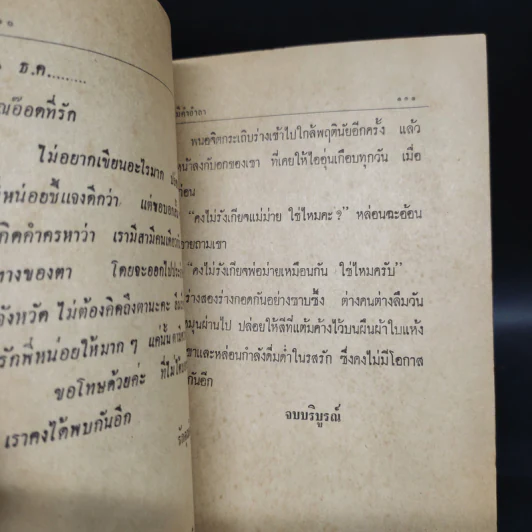 ๖ ธ.ค.........
ณอ๊อดที่รัก
ไม่อยากเขียนอะไรมาก
หน่อยชี้แจงดีกว่า แต่ขอบอก
กิดคำครหาว่า เรามีสามีคนเดียว
ทางของตา โดยจะออกไป
จังหวัด ไม่ต้องคิดถึงตานะคะ
รักพี่หน่อยให้มาก ๆ แค่นั้น
ขอโทษด้วยค่ะ ที่ไม่ได้
เราคงได้พบกันอีก
มีคำอำลา
พนอจิตกระเถิบร่างเข้าไปใกล้พฤตินัยอีกครั้ง แล้ว
หน้าลงกับอกของเขา ที่เคยให้ไออุ่นเกือบทุกวัน เมื่อ
ก่อน
“คงไม่รังเกียจแม่ม่าย ใช่ไหมคะ ?” หล่อนฉะอ้อน
ถามเขา
“คงไม่รังเกียจพ่อม่ายเหมือนกัน ใช่ไหมครับ”
ร่างสองร่างกอดกันอย่างซาบซึ้ง ต่างคนต่างลืมวัน
หมุนผ่านไป ปล่อยให้สีที่แต้มค้างไว้บนผืนผ้าใบแห้ง
เขาและหล่อนกำลังดื่มด่ำในรสรัก ซึ่งคงไม่มีโอกาส
กันอีก
จบบริบูรณ์